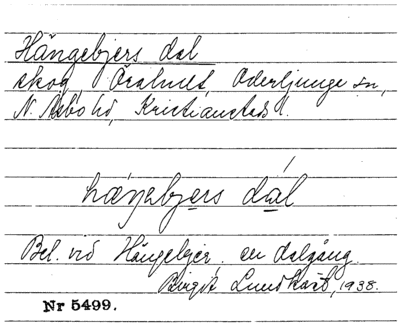 Hängebjers dal
skog, Öraholma, Oderljunga sn,
N. Åsbo hd, Kristianstads l.
hæŋebjers dál
Bel. vid Hängebjer. en dalgång.
Birgit Lundkast, 1938.
Nr 5499.